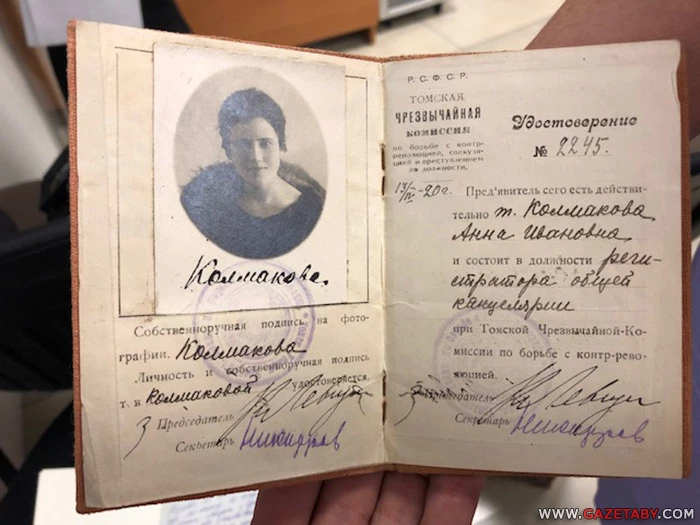 Колмакова.
Собственноручная подпись на фото-
графии. Колмакова
Личность и собственноручная подпись
т. в Колмаковой удостоверяется.
Председатель
Секретарь
Р. С. Ф. С. Р.
ТОМСКАЯ
ЧРЕЗВЫЧАЙНАЯ
КОМИССИЯ
по борьбе с контр-
революцией, спекуля-
цией и преступлением
по должности.
13/IV-20 г.
Удостоверение
№ 2245.
Пред'явитель сего есть действи-
тельно т. Колмакова
Анна Ивановна
и состоит в должности реги-
стратора общей
канцелярии
при Томской Чрезвычайной-Ко-
миссии по борьбе с контр-рево-
люцией.
Председатель
Секретарь
WWW.GAZETABY.COM